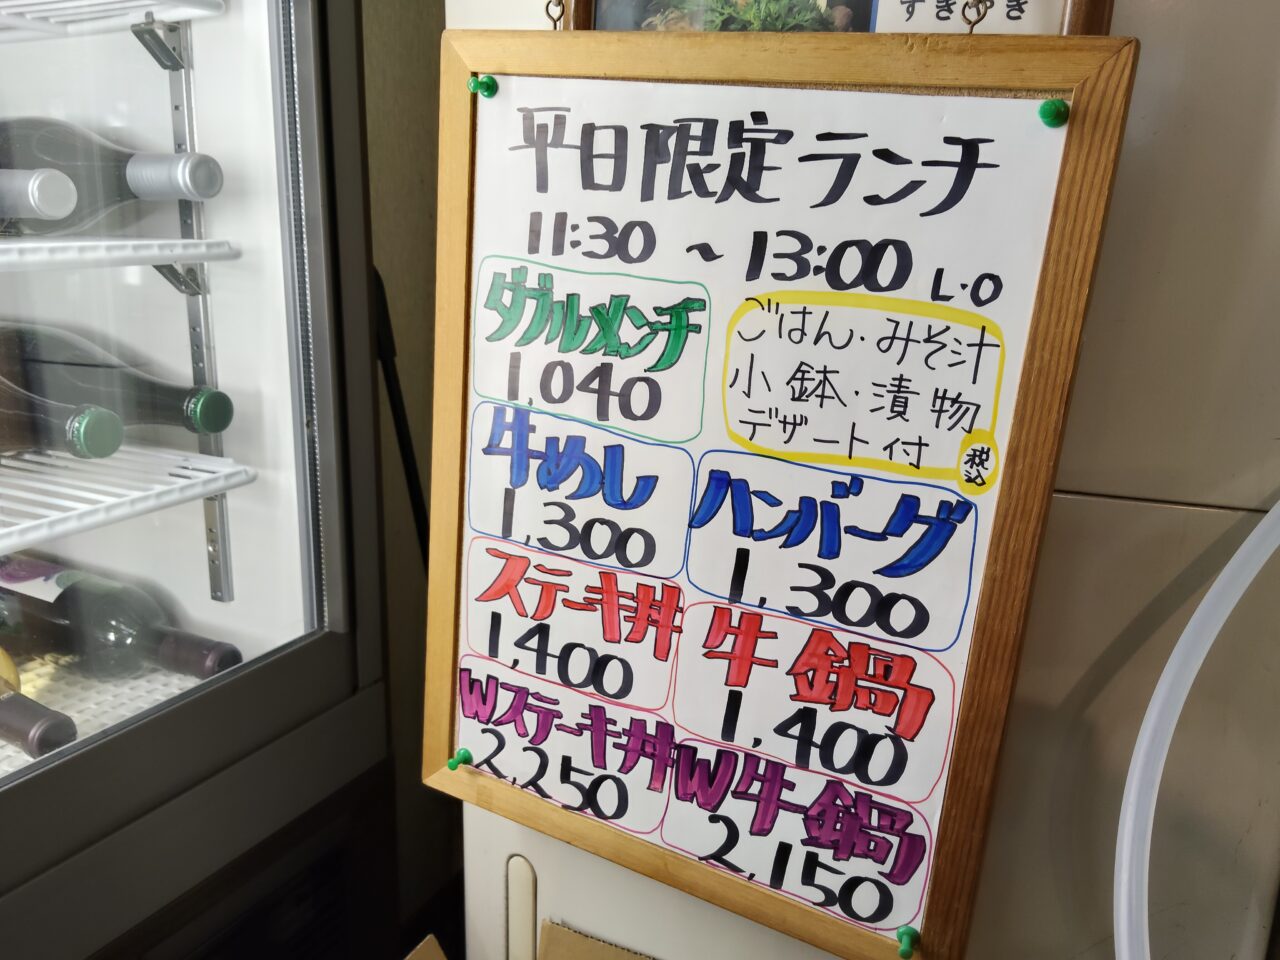 平日限定ランチ
11:30 ~ 13:00 L.O
ダブルメンチ
1,040
ごはん・みそ汁
小鉢・漬物
デザート付
税込
牛めし
1,300
ハンバーグ
1,300
ステーキ丼
1,400
牛鍋
1,400
Wステーキ丼
2,250
W牛鍋
2,150